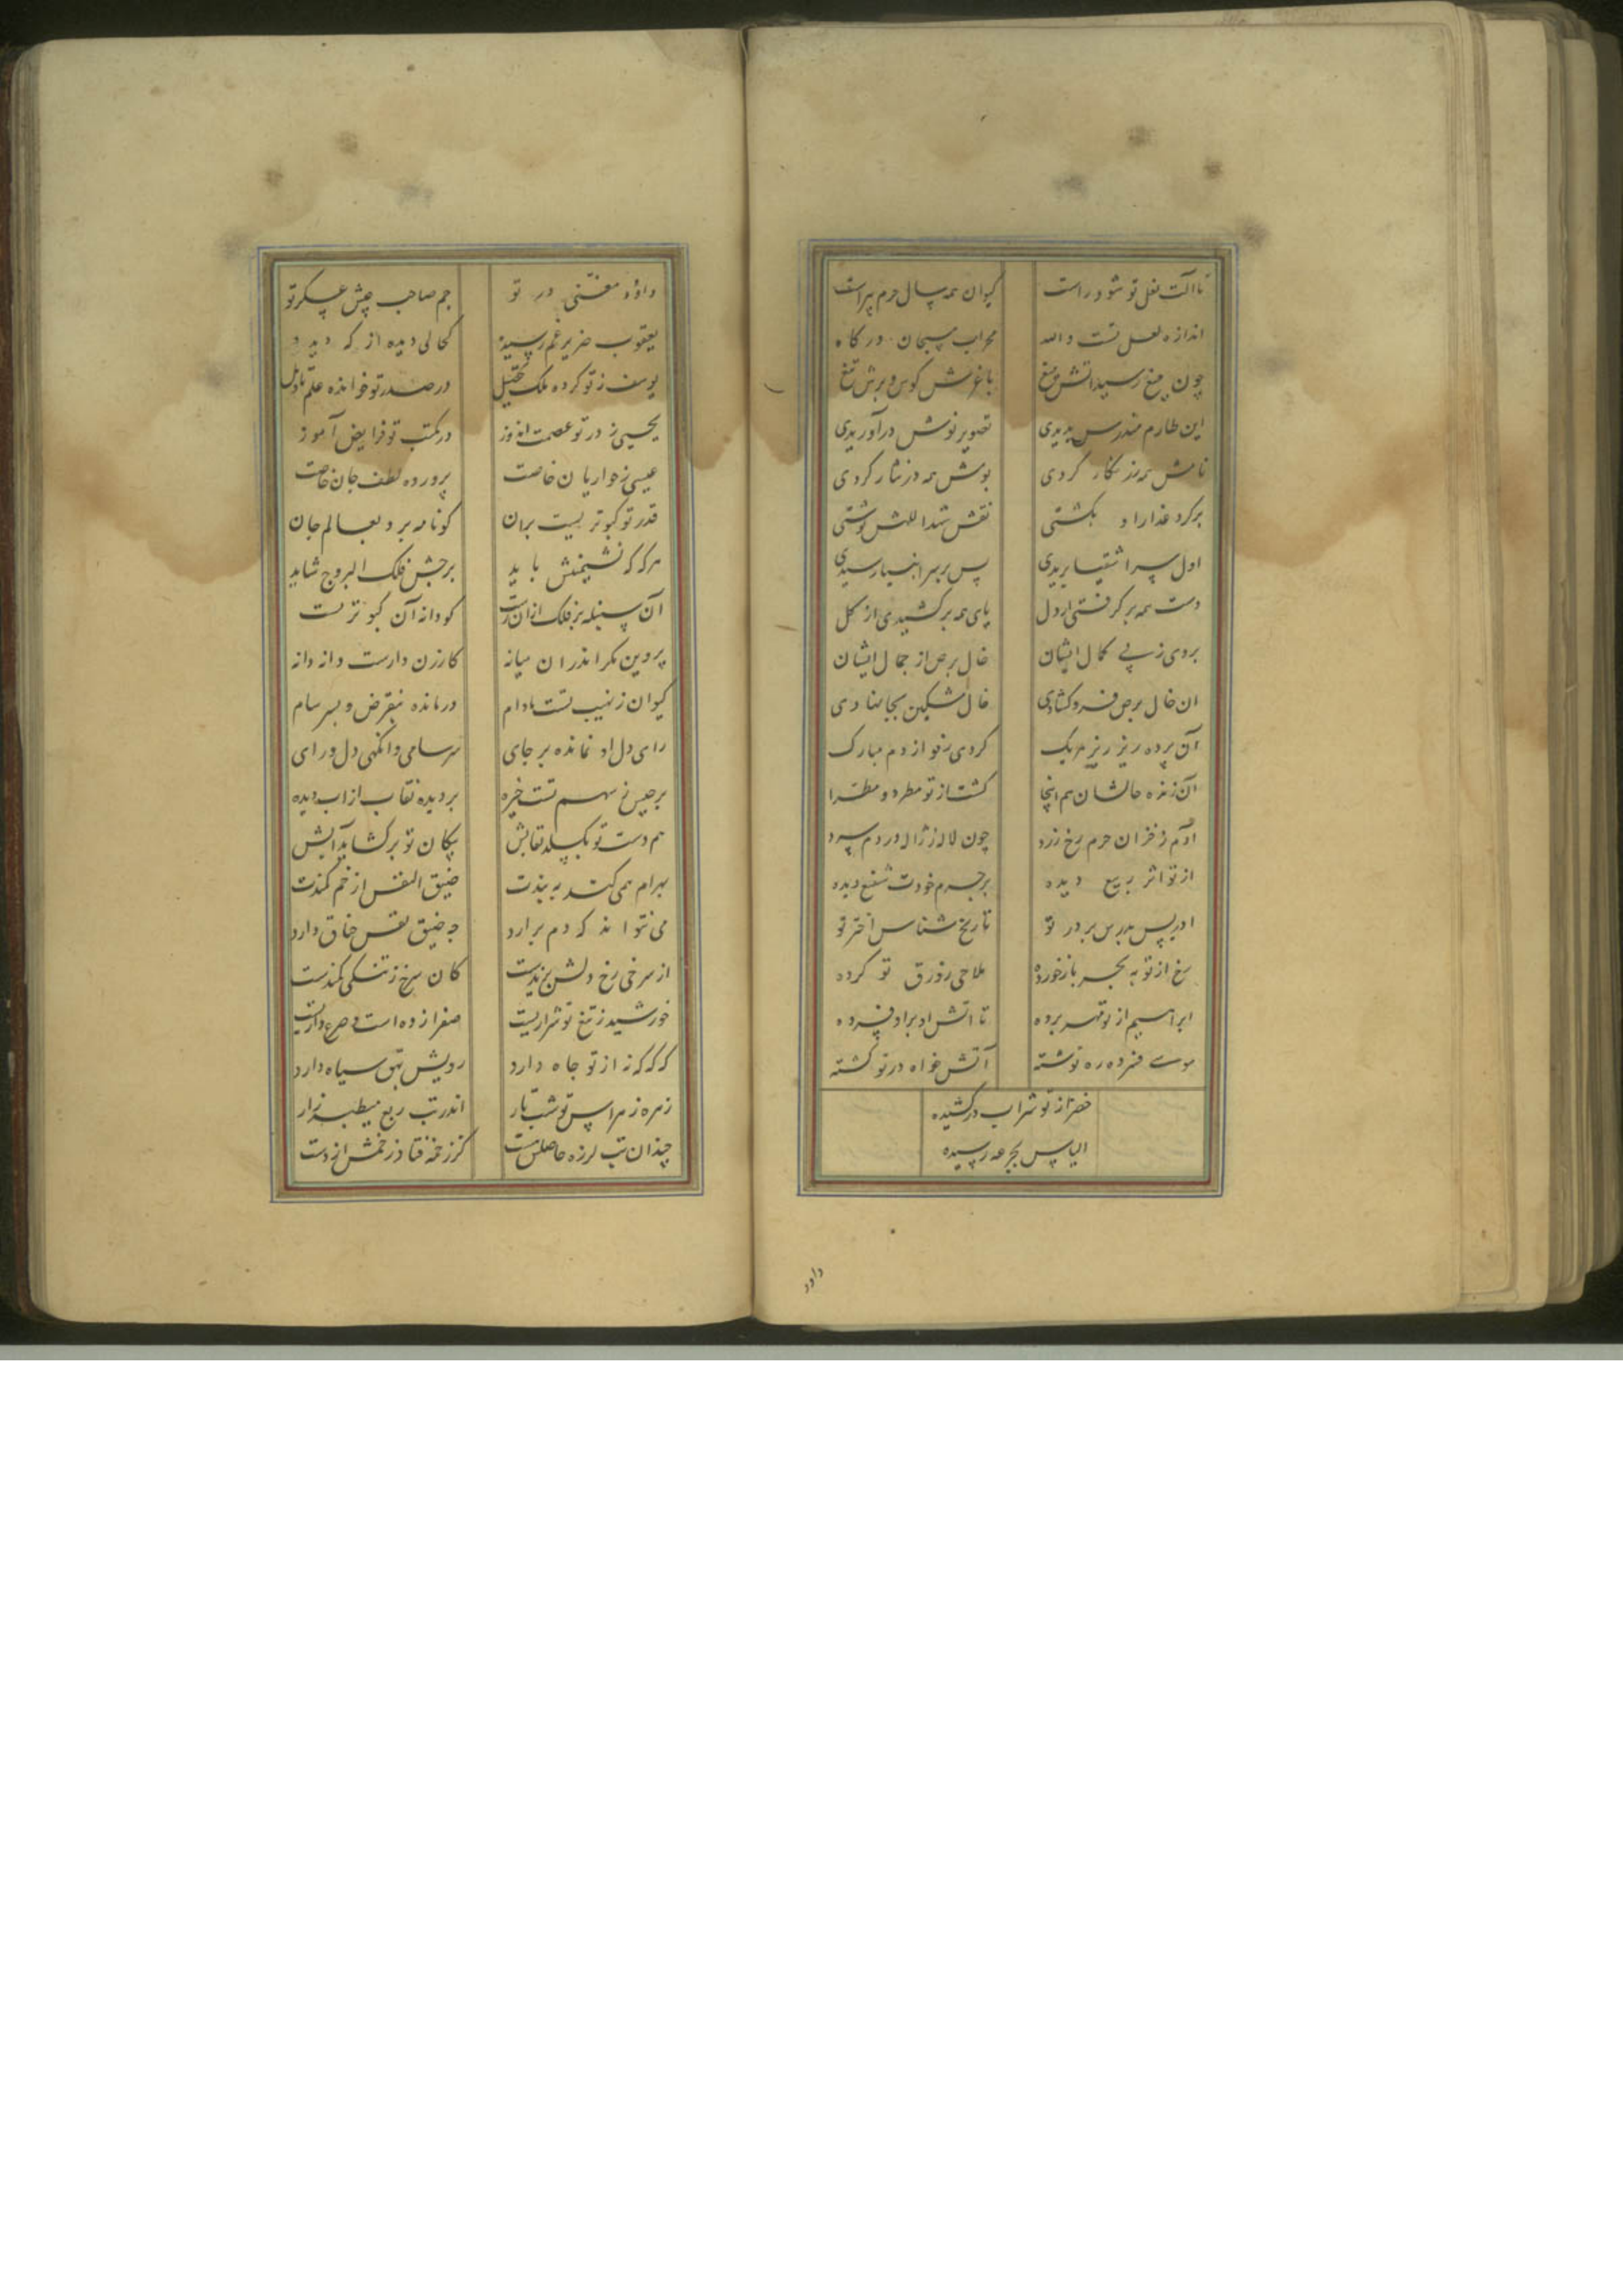 تا آلت نعل تو شود راست کیوان همه سال جرم پیراست
اندازه نعل تست والله محراب مسیحان درگاه
چون میغ رسید آتش میغ با غرش کوس و برش تیغ
این طارم مندرس بدیدی تصویر نوش در آوریدی
نامش همه زر نگار کردی بومش همه در نثار کردی
بر گرد عذار او بگشتی نقش شهدا للهش نوشتی
اول سر اشقیا بریدی پس بر سر انبیا رسیدی
دست همه بر گرفتی از دل پای همه بر کشیدی از گل
بردی ز پی کمال ایشان خال برص از جمال ایشان
ان خال برص فرو گشادی خال مشکین بجا نهادی
آن پرده ریز ریز هر یک کردی رفو از دم مبارک
آن ژنده حالشان هم اینجا گشت از تو مطرد و مطرا
آدم ز خزان جرم رخ زرد چون لاله ز ژاله در دم سرد
از تو اثر ربیع دیده بر جرم خودت شفیع دیده
ادریس مدرس بر در تو تاریخ شناس اختر تو
رخ از تو به بحر باز خورده ملاحی زورق تو کرده
ابراهیم از تو مهر برده تا آتش او بر او فسرده
موسی خضر ده ره نوشته آتش خواه در تو گشته
خضر از تو شراب در کشیده
الیاس بجرعه رسیده
داود
داؤد مغنی در تو جم صاحب جیش عسکر تو
یعقوب ضریر غم رسیده کحالی دیده از که دید و
یوسف ز تو کرده ملک تحصیل در صدر تو خوانده علم تاویل
یحیی ز در تو عصمت اندوز در مکتب تو فرایض آموز
عیسی ز حواریان خاصت پرورده لطف جان خاصت
قدر تو کبوتریست بران کو نامه برد بعالم جان
هر که که نشیمنش باید برجش فلک البروج شاید
آن سنبله بر فلک از آن رست کو دانه آن کبوتر تست
پروین مگر اندران میانه کارزن دارست دانه دانه
کیوان ز نهیب تست مادام درمانده بنقرض و بسرسام
رای دل او نمانده بر جای سرسامی وانگهی دل و رای
برجیس ز سهم تست خیره بر دیده نقاب از اب دیده
هم دست تو بگسلد نقابش پیکان تو بر گشاید آبش
بهرام همی کند به بندت ضیق النفس از خم کمندت
می نتواند که دم برارد چه ضیق نفس خناق دارد
از سرخی رخ دلش نژندست کان سرخ ز تنگی کمندست
خورشید ز تیغ تو شراریست صفرا زده است و صرع داریست
که که که نه از تو جاه دارد رویش بهق سیاه دارد
زهره ز هراس تو شب تار اندر تب ربع میطپد زار
چندان تب لرزه حاصلش هست کز زخمه فتاد زخمش از دست